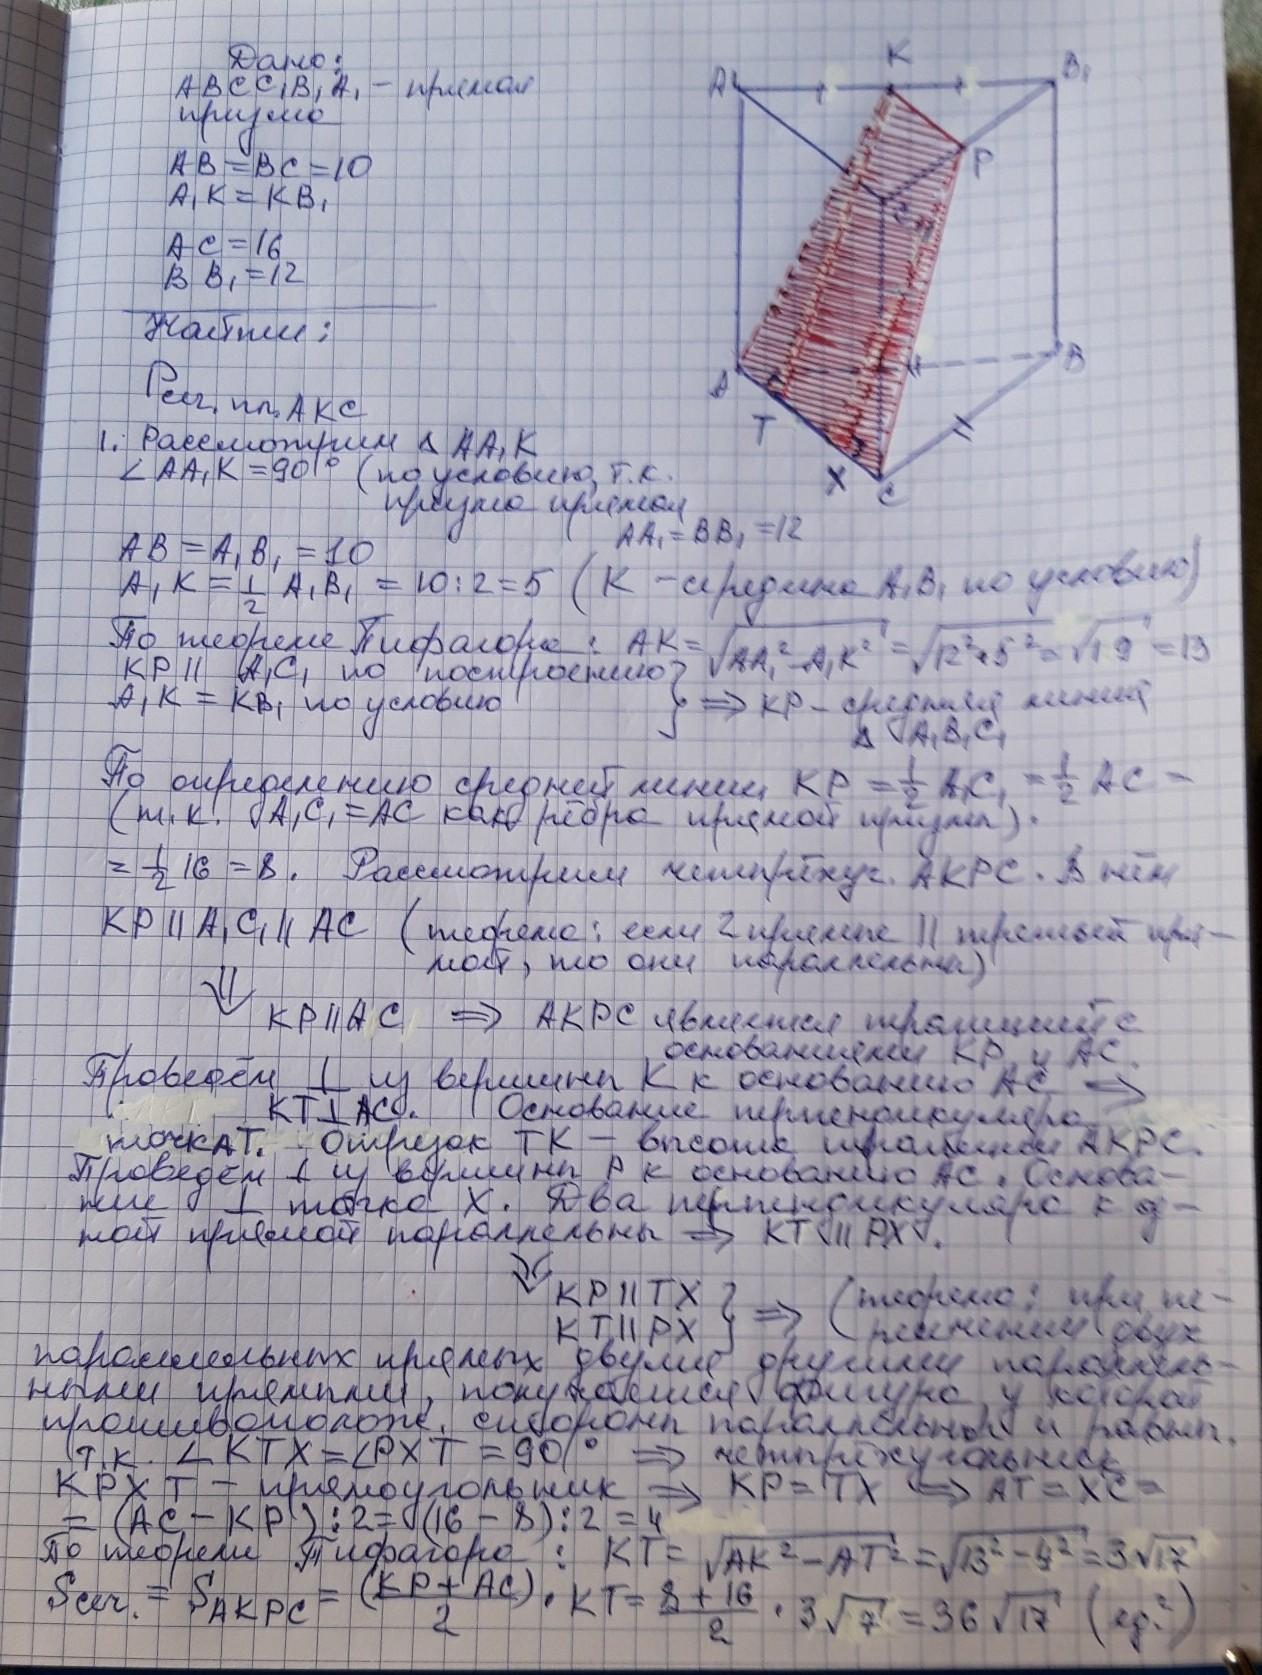 Дано:
ABCC₁B₁A₁ – прямая
призма
AB = BC = 10
A₁K = KB₁
AC = 16
BB₁ = 12
Найти:
Pсеч. пл. AKC
1. Рассмотрим Δ AA₁K
∠AA₁K = 90° (по условию, т.к.
призма прямая
AA₁ = BB₁ = 12
AB = A₁B₁ = 10
A₁K = 1/2 A₁B₁ = 10:2 = 5 (K – середина A₁B₁ по условию)
По теореме Пифагора: AK = √AA₁² – A₁K² = √12²+5² = √19 = 13
KP || A₁C₁ по построению
A₁K = KB₁ по условию } ⟹ KP – средняя линия
Δ A₁B₁C₁
По определению средней линии KP = 1/2 A₁C₁ = 1/2 AC =
(т.к. A₁C₁ = AC как рёбра прямой призмы).
= 1/2 16 = 8. Рассмотрим четырёхуг. AKPC. В нём
KP || A₁C₁ || AC (теорема: если 2 прямые || третьей пря-
мой, то они параллельны)
⇓ KP || AC ⟹ AKPC является трапецией с
основаниями KP и AC.
Проведём ⊥ из вершины K к основанию AC ⟹
KT ⊥ AC. Основание перпендикуляра
точка T. Отрезок TK – высота трапеции AKPC.
Проведём ⊥ из вершины P к основанию AC. Основа-
ние ⊥ точка X. Два перпендикуляра к од-
ной прямой параллельны ⟹ KT || PX.
KP || TX
KT || PX } ⟹ (теорема: при пе-
ресечении двух
параллельных прямых двумя другими параллель-
ными прямыми, получается фигура, у которой
противополож. стороны параллельны и равны.
т.к. ∠KTX = ∠PXT = 90° ⟹ четырёхугольник
KPXT – прямоугольник ⟹ KP = TX ⟹ AT = XC =
= (AC – KP) : 2 = (16 – 8) : 2 = 4
По теореме Пифагора: KT = √AK² – AT² = √13² – 4² = 3√17
Sсеч. = S AKPC = (KP + AC)/2 · KT = 8 + 16/2 · 3√17 = 36√17 (ед.²)
A₁
K
B₁
P
C₁
A
B
T
X
C